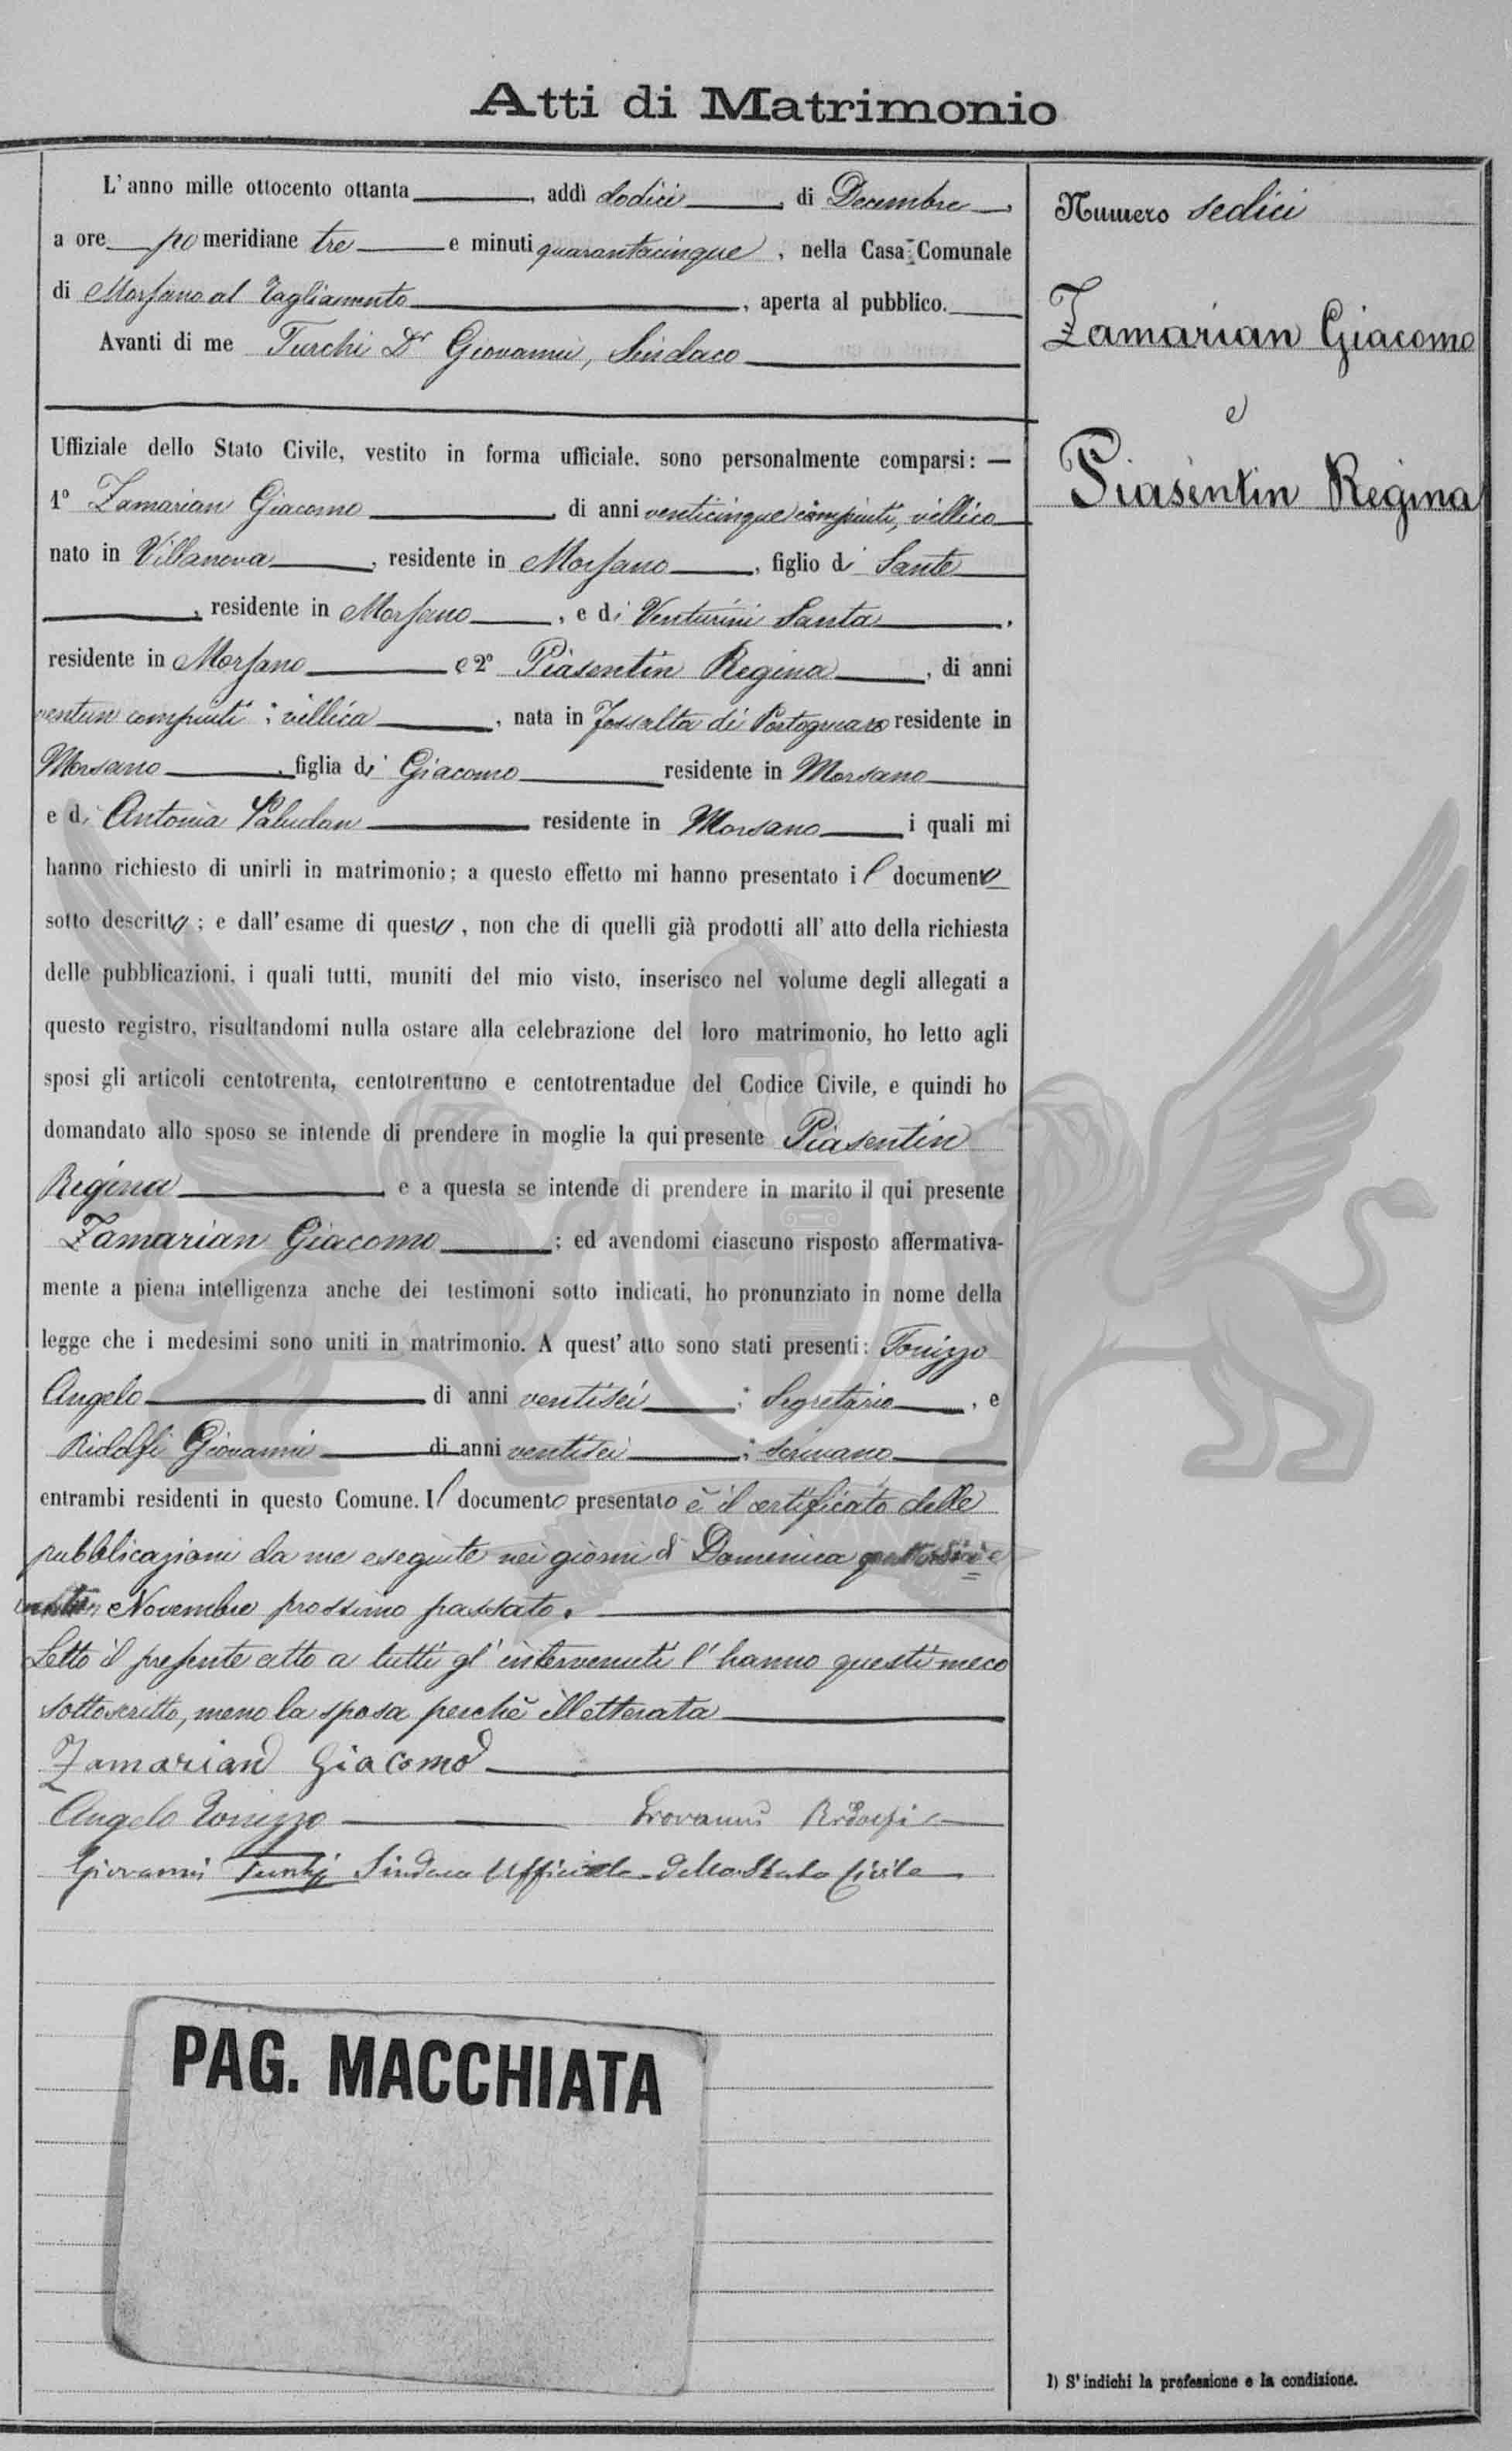 Atti di Matrimonio
L'anno mille ottocento ottanta, addì dodici, di Decembre,
a ore pomeridiane tre e minuti quarantacinque, nella Casa Comunale
di Morsano al Tagliamento, aperta al pubblico.
Avanti di me Turchi Dr Giovanni, Sindaco
Uffiziale dello Stato Civile, vestito in forma ufficiale. sono personalmente comparsi: —
1º Zamarian Giacomo, di anni venticinque compiuti, villico
nato in Villanova, residente in Morsano, figlio di Sante
, residente in Morsano, e di Venturini Santa,
residente in Morsano e 2º Piasentin Regina, di anni
ventun compiuti; villica, nata in Fossalta di Portogruaro residente in
Morsano, figlia di Giacomo residente in Morsano
e di Antonia Paludan residente in Morsano i quali mi
hanno richiesto di unirli in matrimonio; a questo effetto mi hanno presentato il documento
sotto descritto; e dall'esame di questo, non che di quelli già prodotti all'atto della richiesta
delle pubblicazioni, i quali tutti, muniti del mio visto, inserisco nel volume degli allegati a
questo registro, risultandomi nulla ostare alla celebrazione del loro matrimonio, ho letto agli
sposi gli articoli centotrenta, centotrentuno e centotrentadue del Codice Civile, e quindi ho
domandato allo sposo se intende di prendere in moglie la qui presente Piasentin
Regina e a questa se intende di prendere in marito il qui presente
Zamarian Giacomo; ed avendomi ciascuno risposto affermativa-
mente a piena intelligenza anche dei testimoni sotto indicati, ho pronunziato in nome della
legge che i medesimi sono uniti in matrimonio. A quest'atto sono stati presenti: Tonizzo
Angelo di anni ventisei; Segretario, e
Ridolfi Giovanni di anni ventisei; scrivano
entrambi residenti in questo Comune. Il documento presentato è il certificato delle
pubblicazioni da me eseguite nei giorni di Domenica quattordici e
Novembre prossimo passato.
Letto il presente atto a tutti gl'intervenuti l'hanno questi meco
sottoscritto, meno la sposa perchè illetterata
Zamarian Giacomo
Angelo Tonizzo Giovanni Ridolfi
Giovanni Turchi Sindaco Ufficiale dello Stato Civile
PAG. MACCHIATA
Numero sedici
Zamarian Giacomo
e
Piasentin Regina
1) S'indichi la professione e la condizione.